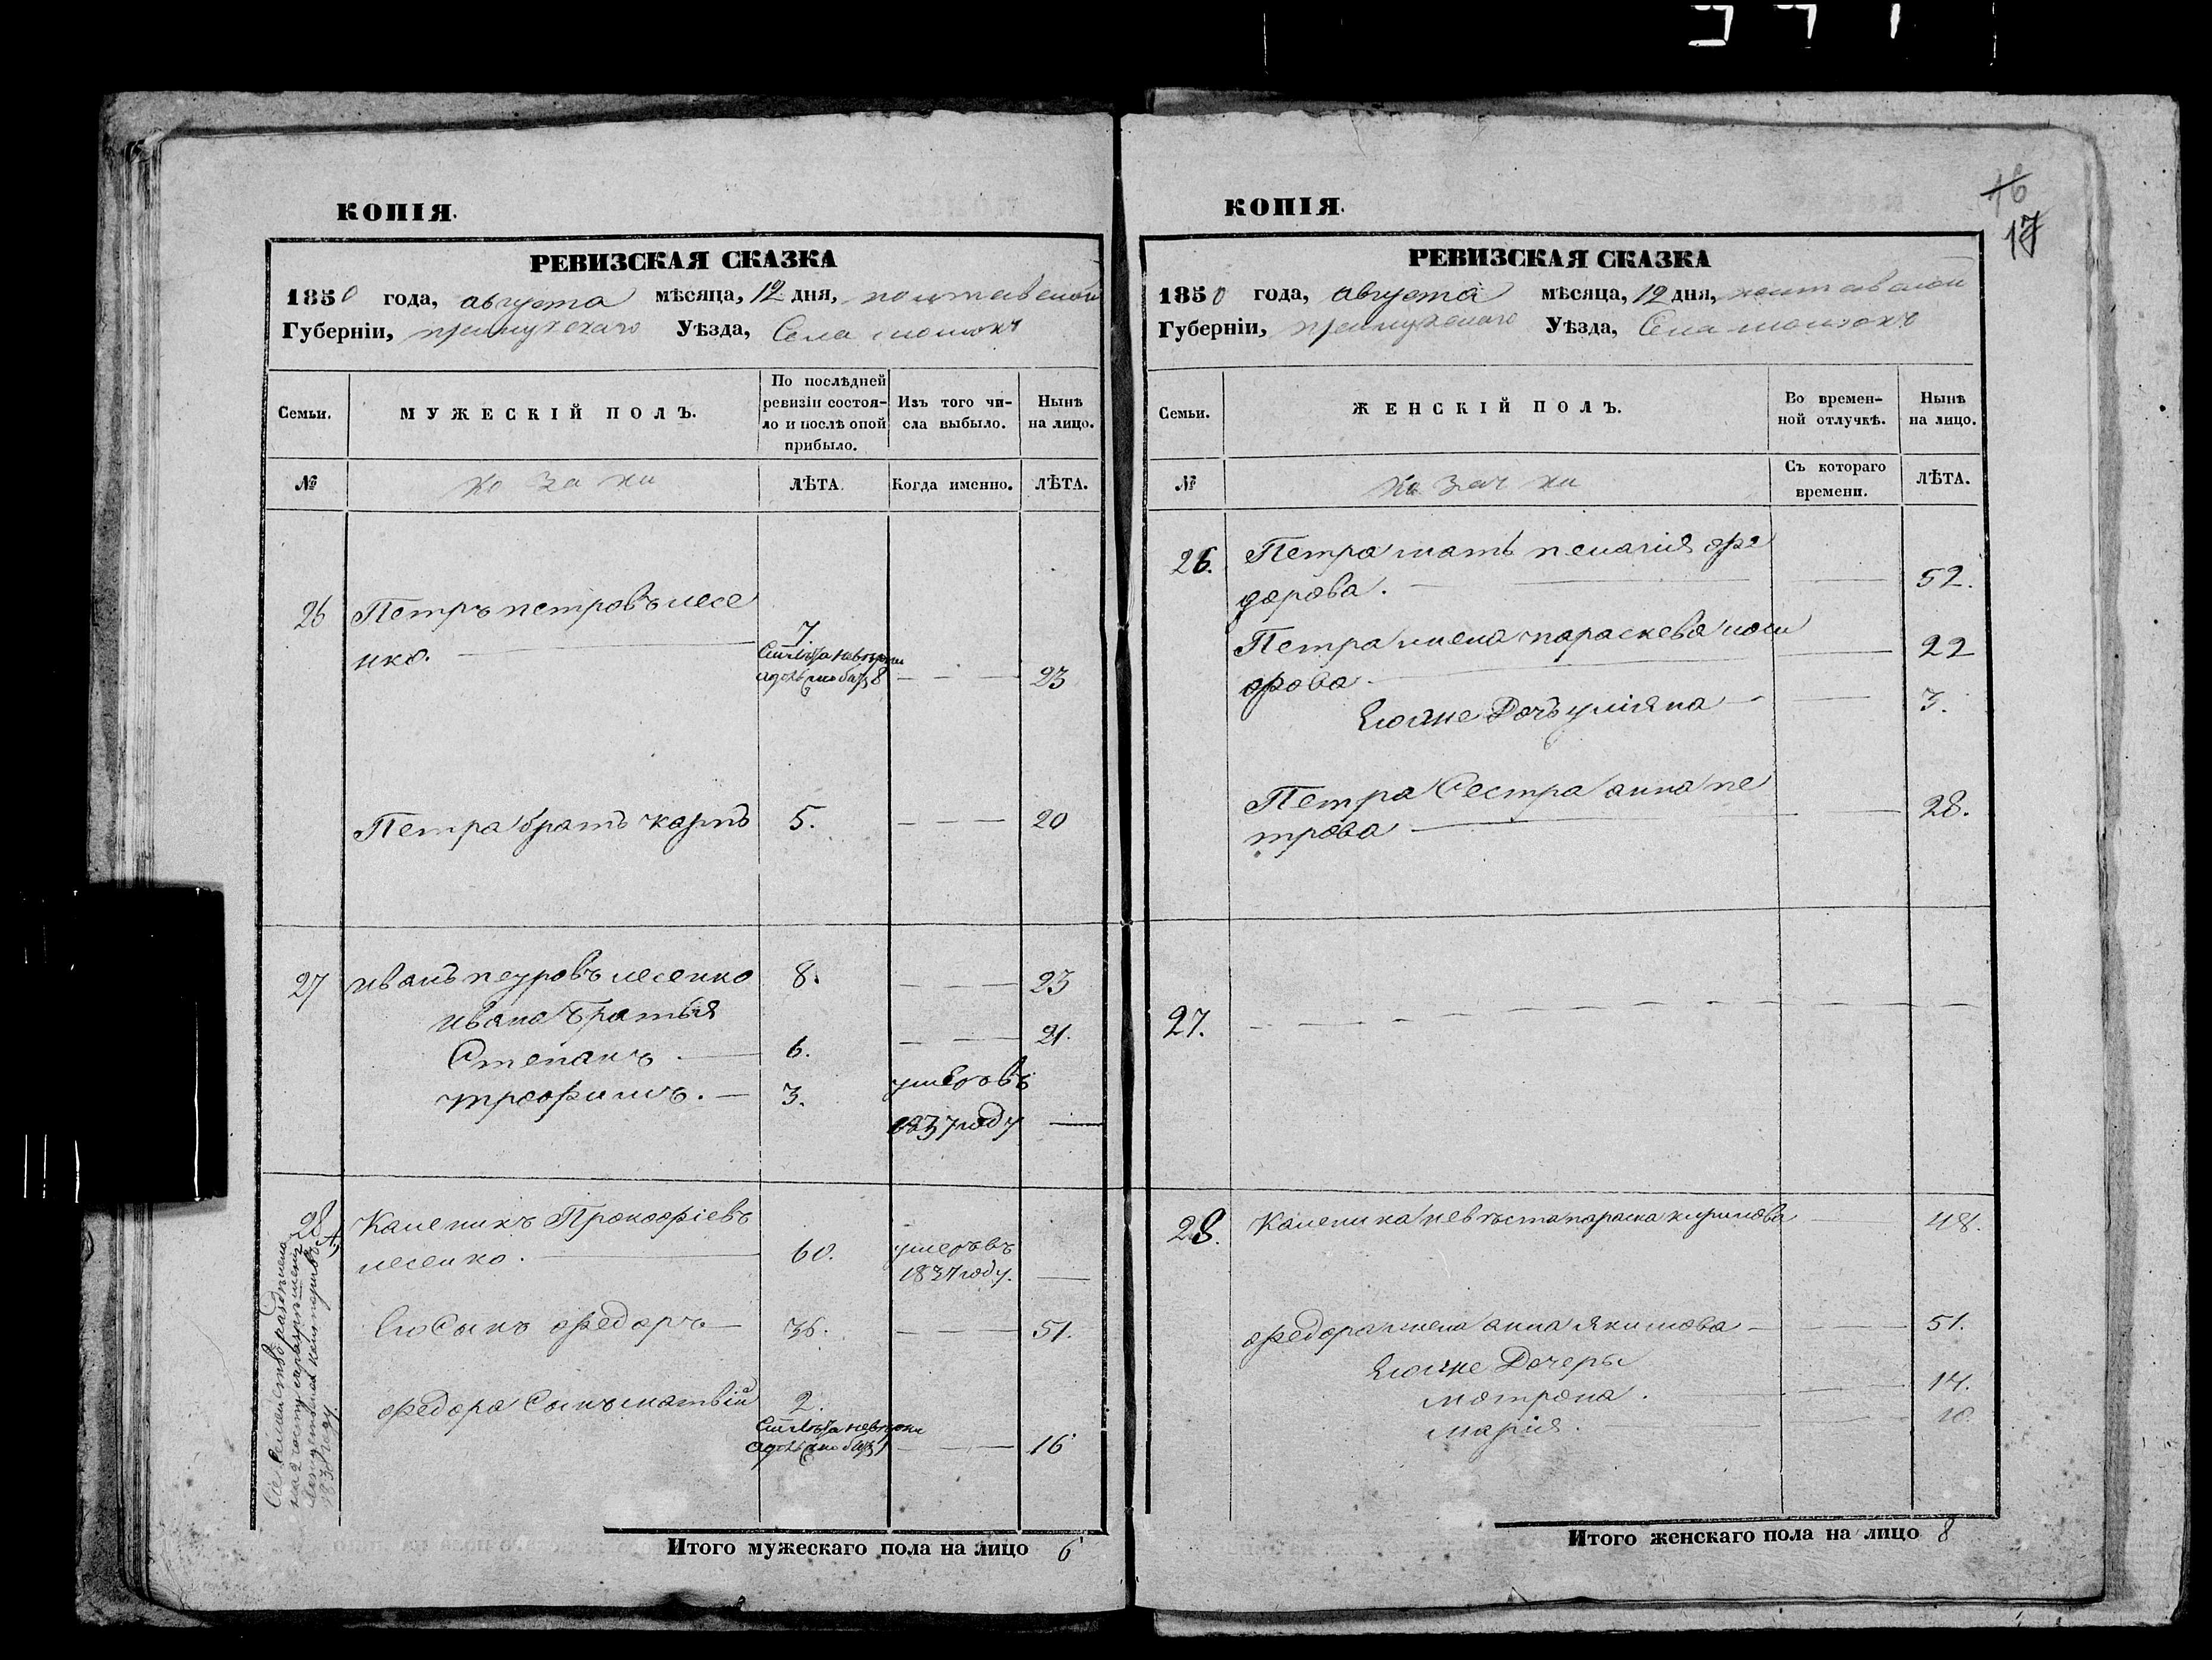 16
17
КОПІЯ.
РЕВИЗСКАЯ СКАЗКА
1850 года, августа мѣсяца, 12 дня, полтавской
Губерніи, прилуцкаго Уѣзда, Села
Семьи.
МУЖЕСКІЙ ПОЛЪ.
По послѣдней
ревизіи состоя-
ло и послѣ оной
прибыло.
Изъ того чи-
сла выбыло.
Нынѣ
на лицо.
№
козаки
ЛѢТА.
Когда именно.
ЛѢТА.
26 Петръ петровъ лесе
нко. 7.
23
Петра братъ карпъ 5. 20
27 иванъ петровъ лесенко 8. 23
ивана братья
Степанъ 6. 21.
трофимъ. 3. умеръ въ
1837 году
28 Каленикъ Прокофіевъ
лесенко. 60. умеръ въ
1837 году.
Его Сынъ федоръ 36. 51.
федора Сынъ матвій 2.
16
Сіе Семейство
1838 году
Итого мужескаго пола на лицо 6
КОПІЯ.
РЕВИЗСКАЯ СКАЗКА
1850 года, августа мѣсяца, 12 дня, полтавской
Губерніи, прилуцкаго Уѣзда, Села
Семьи.
ЖЕНСКІЙ ПОЛЪ.
Во времен-
ной отлучкѣ.
Нынѣ
на лицо.
№
козачки
Съ котораго
времени.
ЛѢТА.
26. Петра мать пелагія фе
дорова. 52.
Петра жена параскева
22
Егоже Дочь уліяна 3.
Петра Сестра анна пе
трова 28.
27.
28. Каленика невѣстка параска кирилова 48.
федора жена анна якимова 51.
Егоже Дочеры
мотрона. 14.
марія. 10.
Итого женскаго пола на лицо 8